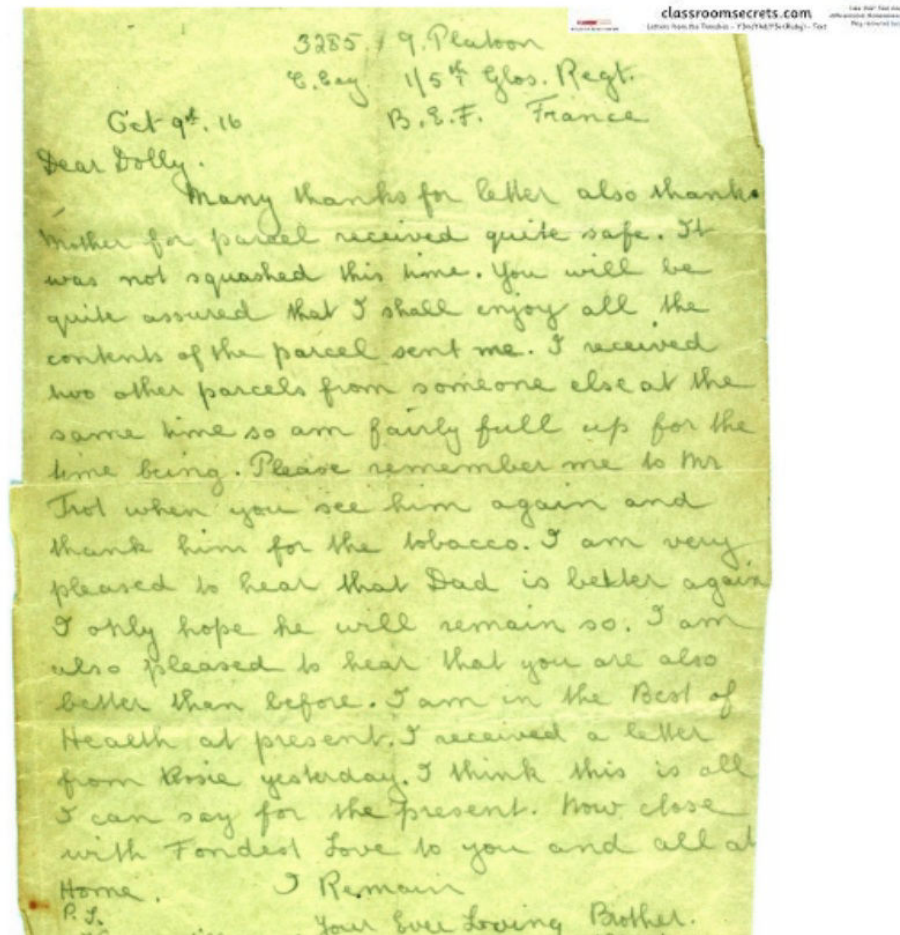 classroomsecrets.com
Letters from the Trenches – Text
3285. 9. Platoon
C. Coy 1/5th Glos. Regt.
Oct 9th. 16 B.E.F. France
Dear Dolly.
Many thanks for letter also thanks
Mother for parcel received quite safe. It
was not squashed this time. You will be
quite assured that I shall enjoy all the
contents of the parcel sent me. I received
two other parcels from someone else at the
same time so am fairly full up for the
time being. Please remember me to Mr
Trot when you see him again and
thank him for the tobacco. I am very
pleased to hear that Dad is better again
I only hope he will remain so. I am
also pleased to hear that you are also
better than before. I am in the Best of
Health at present. I received a letter
from Rosie yesterday. I think this is all
I can say for the present. Now close
with Fondest Love to you and all at
Home. I Remain
P.S. Your Ever Loving Brother.